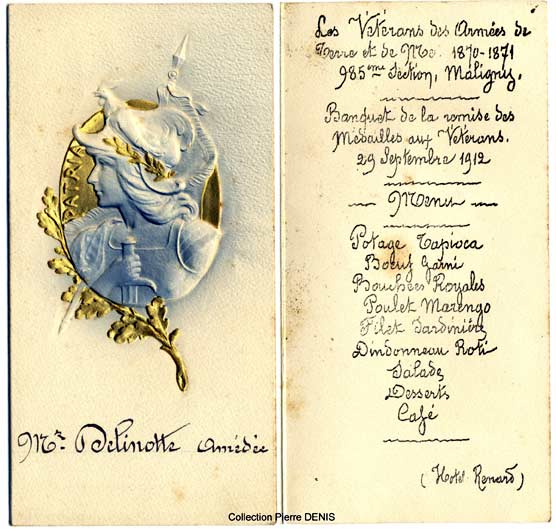 PATRIA
Mr. Delinotte Amédée
Les Vétérans des Armées de
Terre et de Mer 1870-1871
985ème Section, Maligny.
Banquet de la remise des
Médailles aux Vétérans.
29 Septembre 1912
Menu
Potage Tapioca
Boeuf garni
Bouchées Royales
Poulet Marengo
Filet Jardinière
Dindonneau Roti
Salade
Desserts
Café
(Hotel Renard)
Collection Pierre DENIS